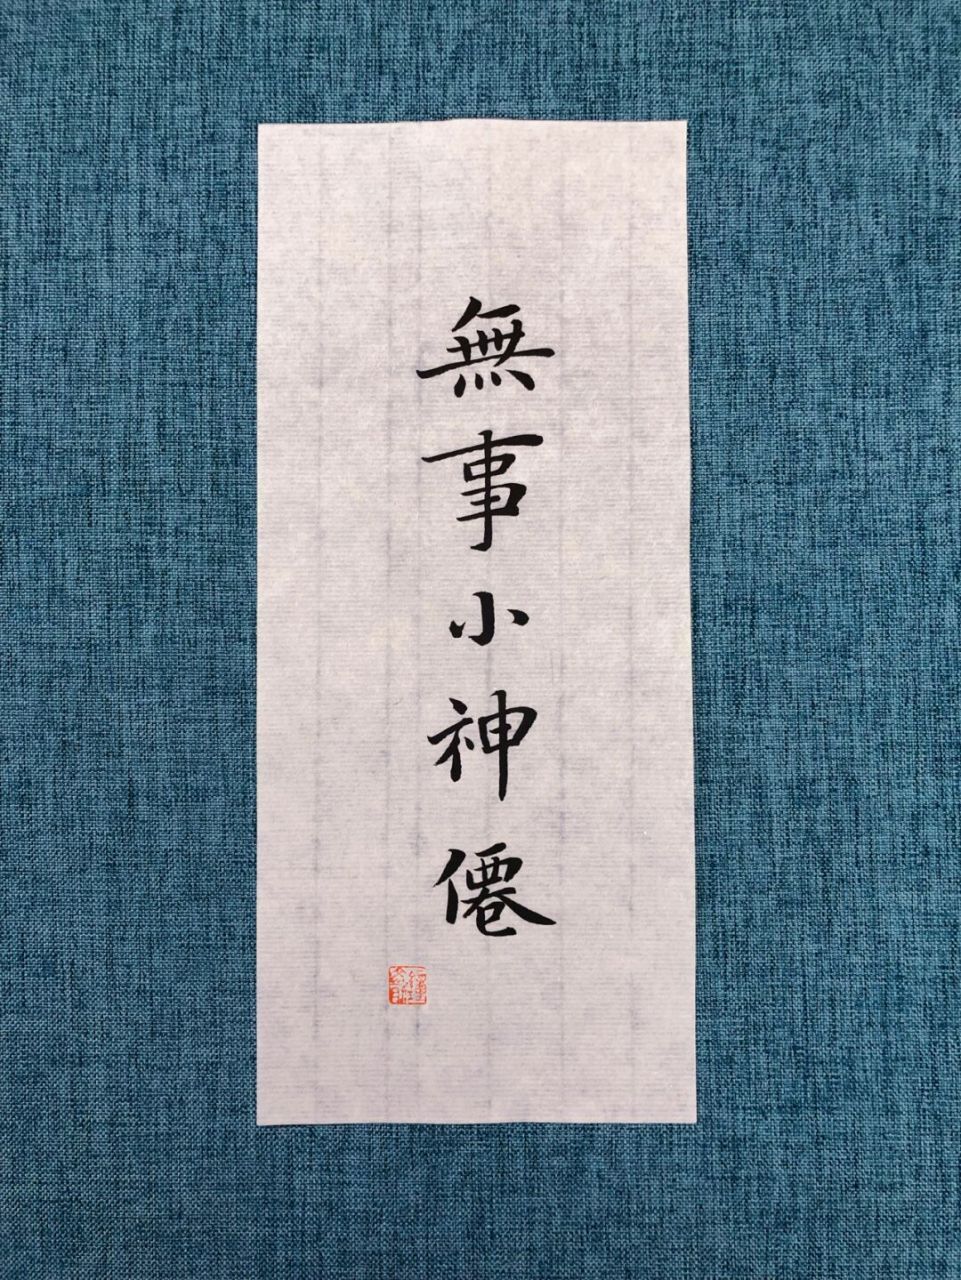 無事小神僊